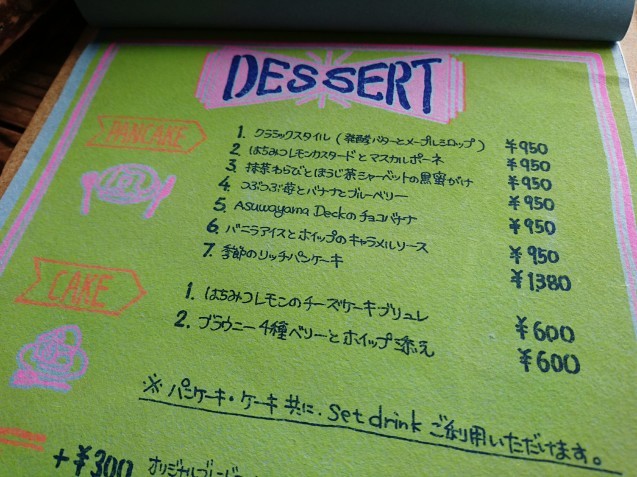 DESSERT
PANCAKE
1. クラシックスタイル (発酵バターとメープルシロップ) ¥950
2. はちみつレモンカスタードとマスカルポーネ ¥950
3. 抹茶わらびとほうじ茶シャーベットの黒蜜がけ ¥950
4. つぶつぶ苺とバナナとブルーベリー ¥950
5. Asuwayama Deckのチョコバナナ ¥950
6. バニラアイスとホイップのキャラメルソース ¥950
7. 季節のリッチパンケーキ ¥1,380
CAKE
1. はちみつレモンのチーズケーキブリュレ ¥600
2. ブラウニー 4種ベリーとホイップ添え ¥600
※ パンケーキ・ケーキ 共に、set drink ご利用いただけます。
+¥300 オリジナルブレンド